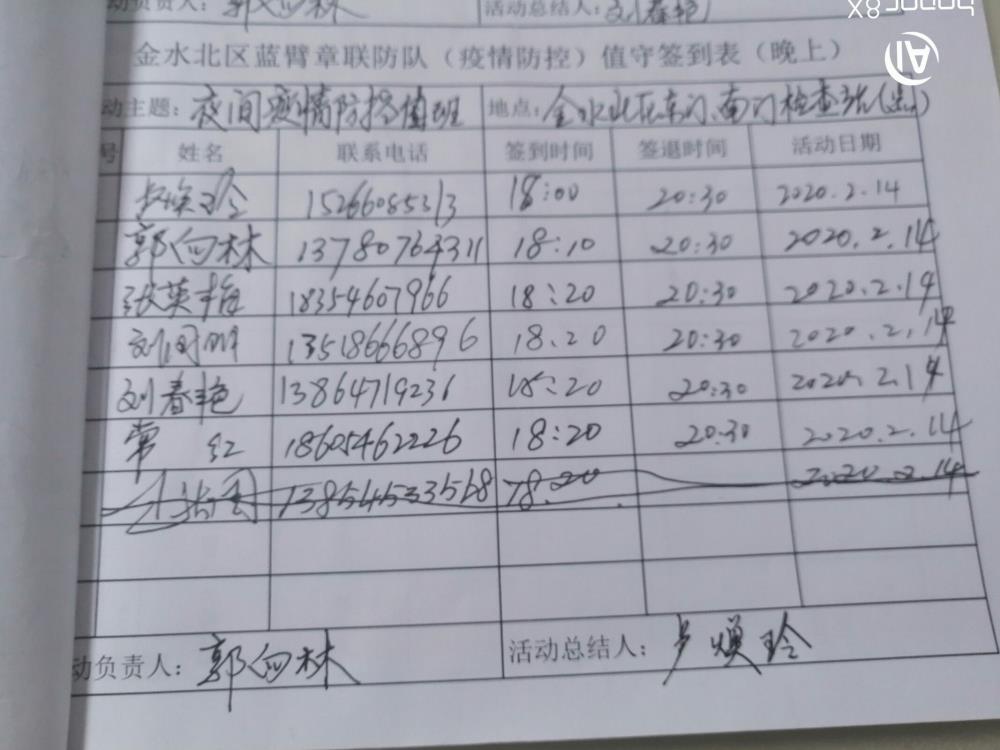 动负责人：郭向林 活动总结人：刘春艳
honor 8X
AI
金水北区蓝臂章联防队（疫情防控）值守签到表（晚上）
动主题：夜间疫情防控值班 地点：金水北区东门、南门检查站
号 姓名 联系电话 签到时间 签退时间 活动日期
卢焕玲 15266085313 18:00 20:30 2020.2.14
郭向林 13780764311 18:10 20:30 2020.2.14
张英梅 18354607966 18:20 20:30 2020.2.14
刘国明 13518666896 18.20 20:30 2020.2.14
刘春艳 13864719236 18:20 20:30 2020.2.14
常红 18605462226 18:20 20.30 2020.2.14
13854533568 18.20 2020.2.14
动负责人：郭向林 活动总结人：卢焕玲